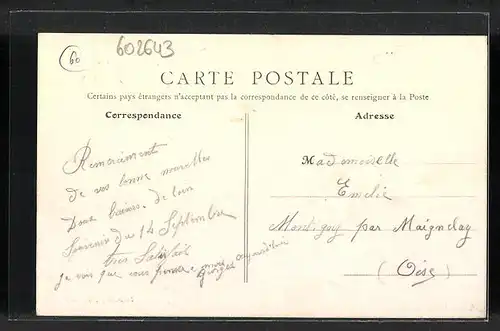 60
602643
CARTE POSTALE
Certains pays étrangers n'acceptant pas la correspondance de ce côté, se renseigner à la Poste
Correspondance
Adresse
Remerciment
de vos bonne nouvelles
Doux baisers de loin
Souvenir du 14 Septembre
très
je vois que vous
Georges
Mademoiselle
Emelie
Montigny par Maignelay
(Oise)